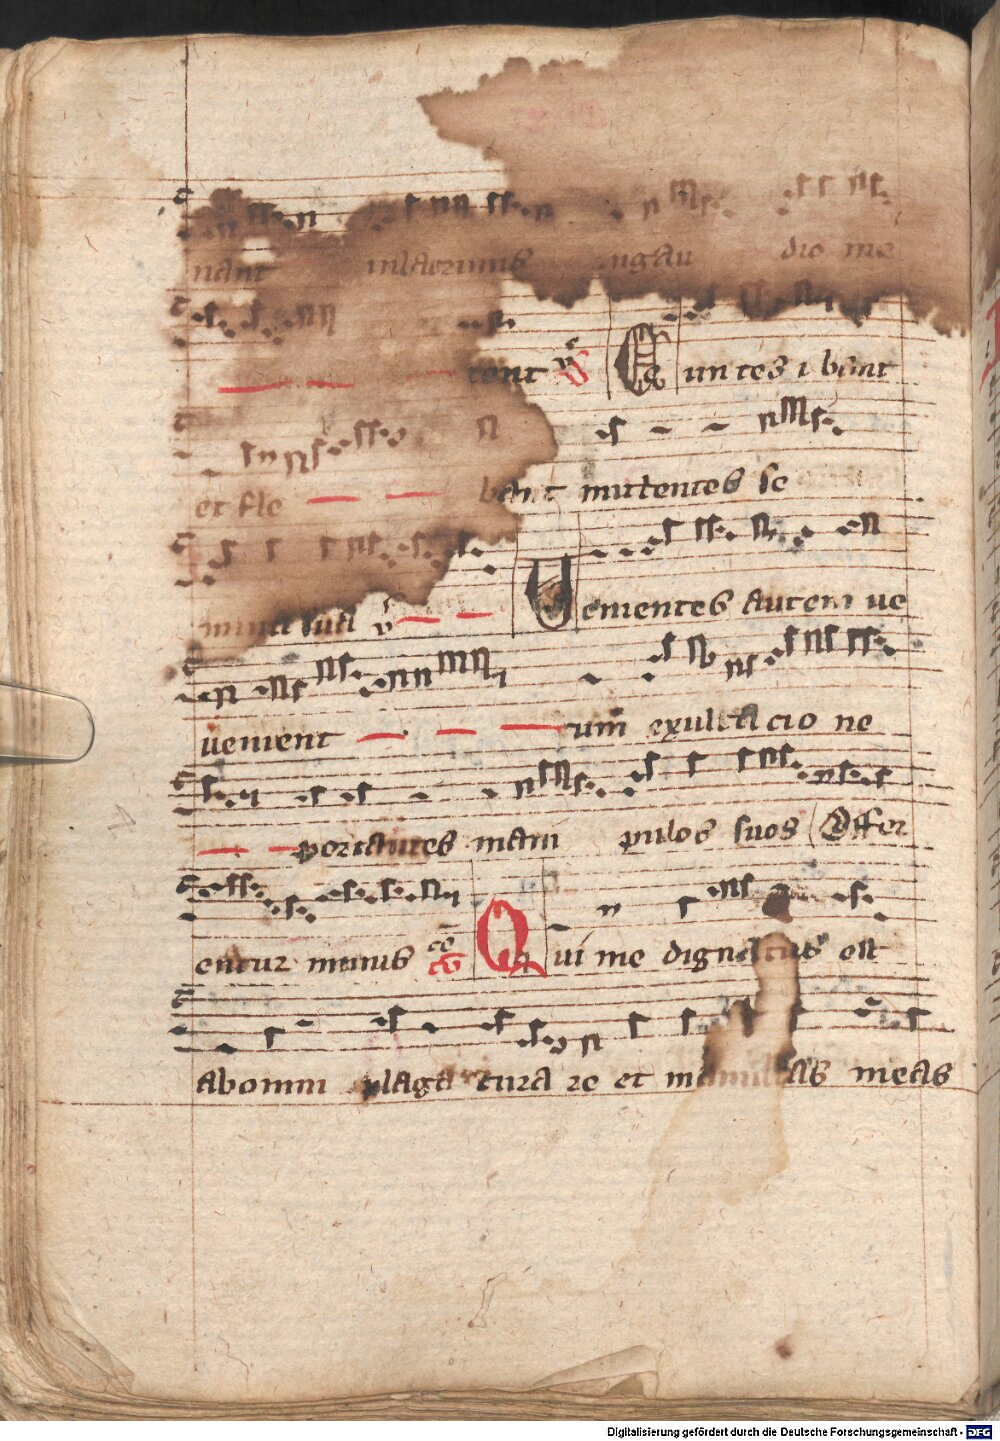 nant in lacrimis in gau dio me
tent v̉ Euntes ibant
et fle bant mittentes se
mina sua v̉ Uenientes autem ve
uenient cum exultacio ne
portantes mani pulos suos Offer
entur minus co Qui me dignatus est
ab omni plaga cura re et mamillas meas
Digitalisierung gefördert durch die Deutsche Forschungsgemeinschaft - DFG